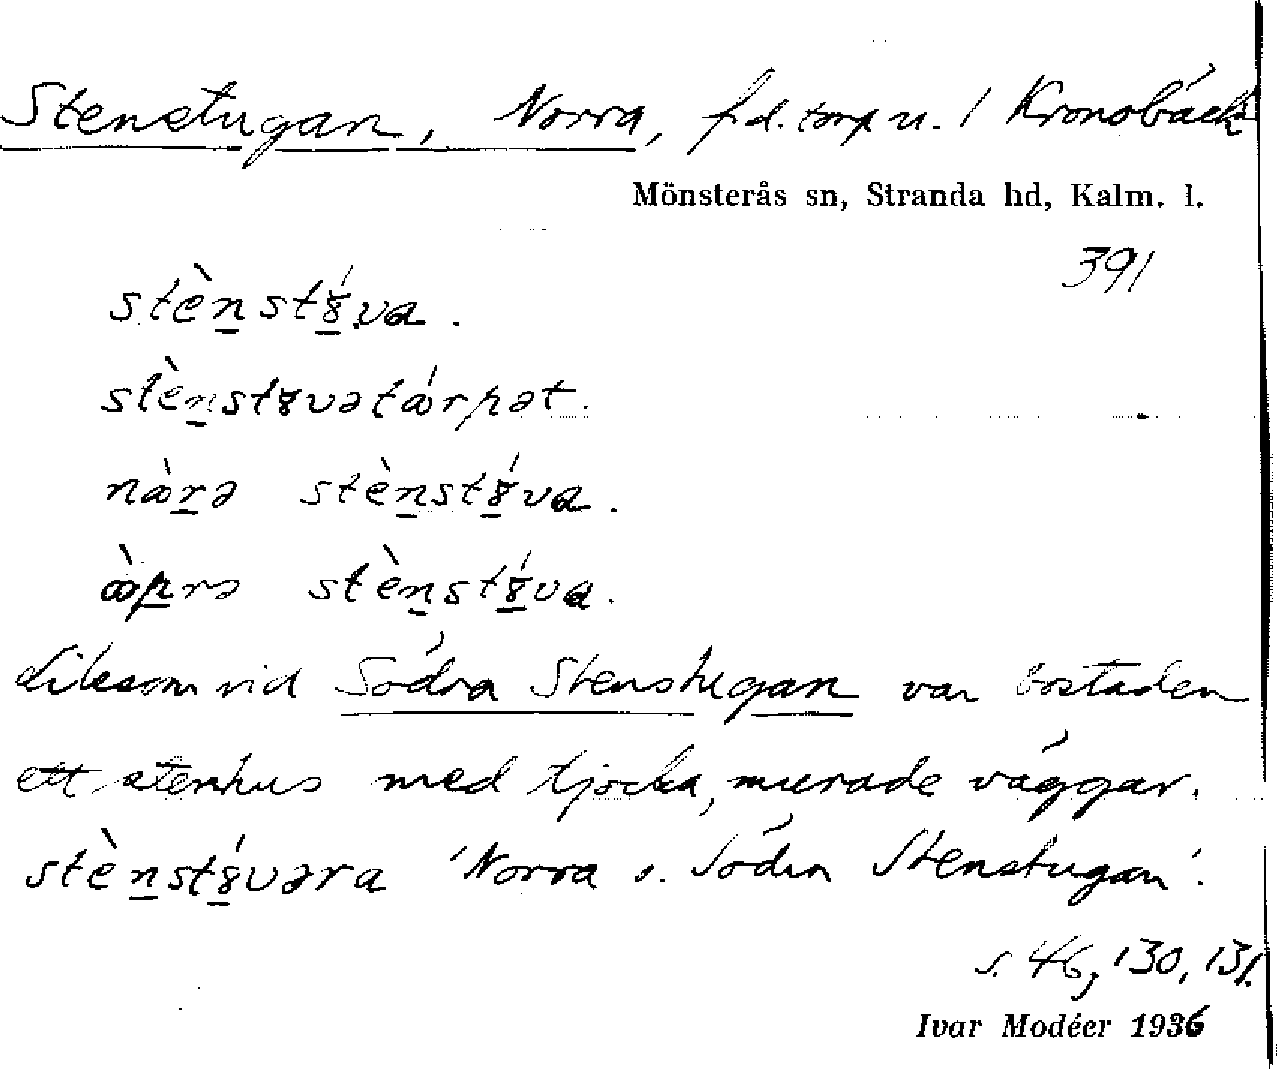 Stenstugan, Norra, f.d. torp u. 1 Kronobäck
Mönsterås sn, Stranda hd, Kalm. l.
391
stènstɤ́va.
stènstɤvətꝏ́rpət.
nꝏ̀rə stènstɤ́va.
ꝏ̀prə stènstɤ́va.
Liksom vid Södra Stenstugan var bostaden
ett stenhus med tjocka, murade väggar.
stènstɤ́vəra 'Norra o. Södra Stenstugan'.
s. 46, 130, 131.
Ivar Modéer 1936